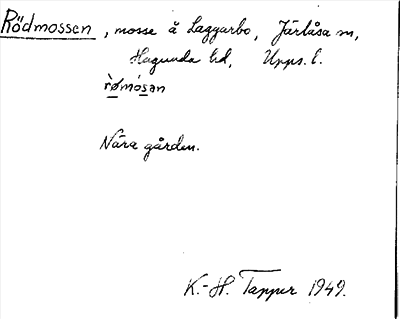 Rödmossen, mosse å Laggarbo, Järlåsa sn,
Hagunda hd, Upps. l.
rø̀mósan
Nära gården.
K.-H. Tapper 1949.